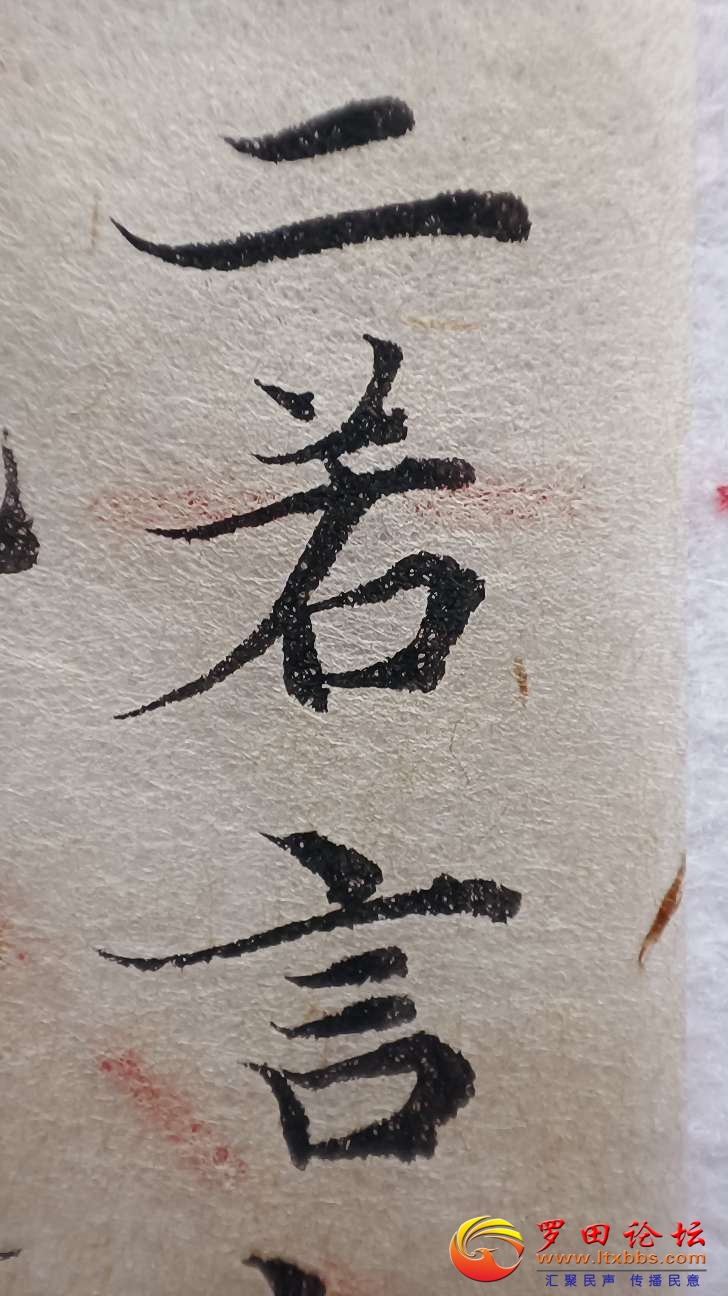 二若言
罗田论坛
www.ltxbbs.com
汇聚民声 传播民意